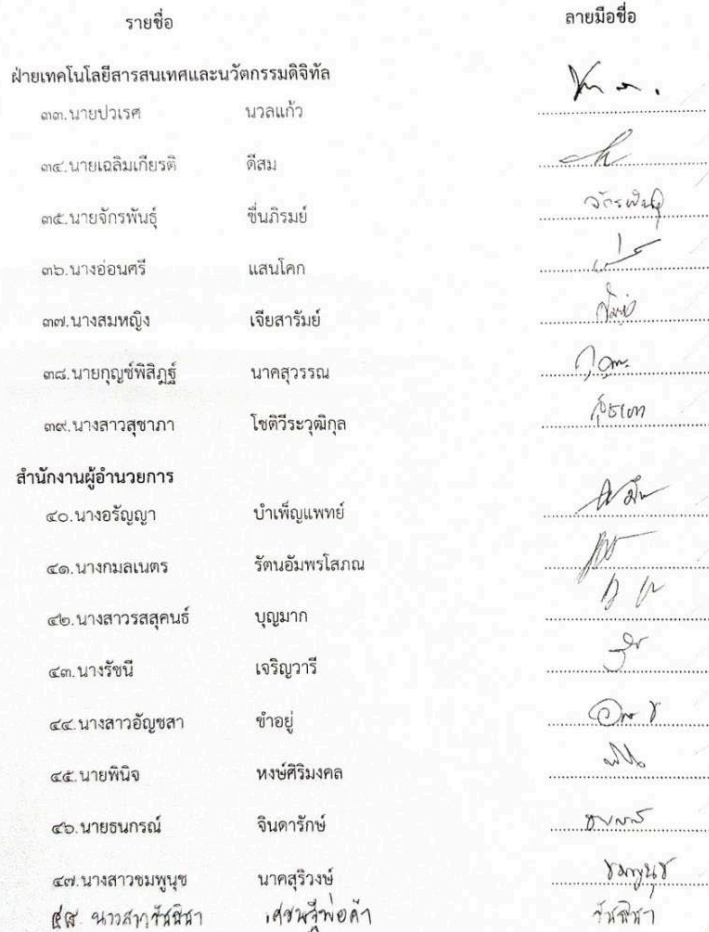 รายชื่อ ลายมือชื่อ
ฝ่ายเทคโนโลยีสารสนเทศและนวัตกรรมดิจิทัล
๓๓.นายปวเรศ นวลแก้ว
๓๔.นายเฉลิมเกียรติ ดีสม
๓๕.นายจักรพันธุ์ ชื่นภิรมย์ จักรพันธุ์
๓๖.นางอ่อนศรี แสนโคก
๓๗.นางสมหญิง เจียสารัมย์
๓๘.นายกุญช์พิสิฏฐ์ นาคสุวรรณ
๓๙.นางสาวสุชาภา โชติวีระวุฒิกุล
สำนักงานผู้อำนวยการ
๔๐.นางอรัญญา บำเพ็ญแพทย์
๔๑.นางกมลเนตร รัตนอัมพรโสภณ
๔๒.นางสาวรสสุคนธ์ บุญมาก
๔๓.นางรัชนี เจริญวารี
๔๔.นางสาวอัญชสา ขำอยู่
๔๕.นายพินิจ หงษ์ศิริมงคล
๔๖.นายธนกรณ์ จินดารักษ์
๔๗.นางสาวชมพูนุช นาคสุริวงษ์ ชมพูนุช
๔๘ นางสาว